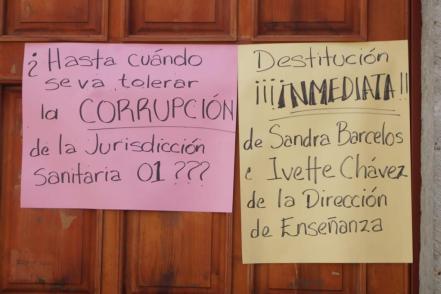 ¿Hasta cuándo
se va tolerar
la CORRUPCIÓN
de la Jurisdicción
Sanitaria 01???
Destitución
¡¡¡INMEDIATA!!
de Sandra Barcelos
e Ivette Chávez
de la Dirección
de Enseñanza